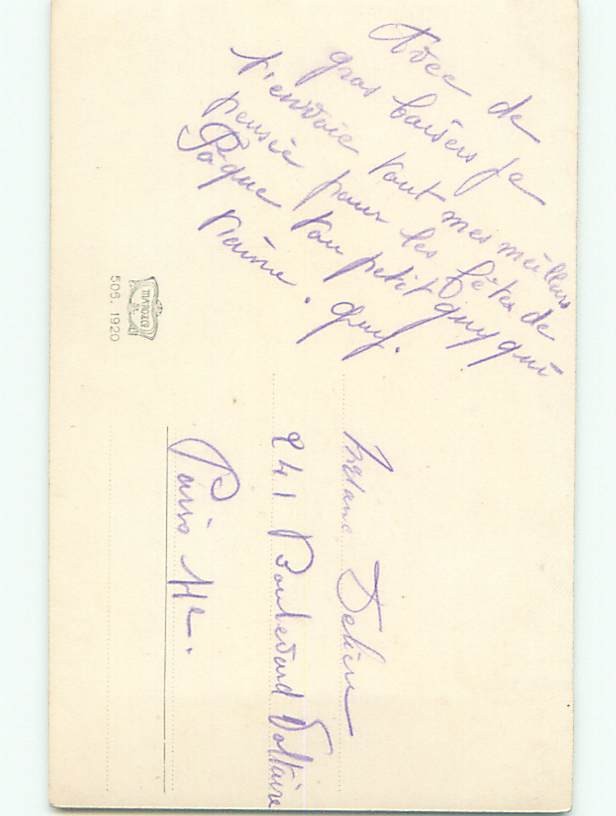 Avec de
gros baisers je
t'envoie tout mes meilleurs
pensée pour les fêtes de
Pâque ton petit guy qui
t'aime. guy.
241 Boulevard Voltaire
Paris 11e.
505. 1920